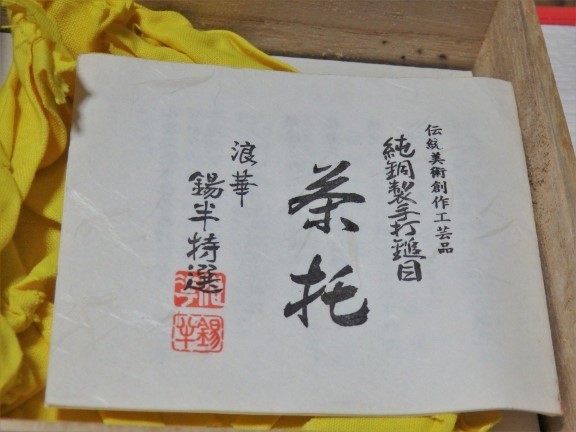 伝統美術創作工芸品
純銅製手打鎚目
茶托
浪華
錫半特選